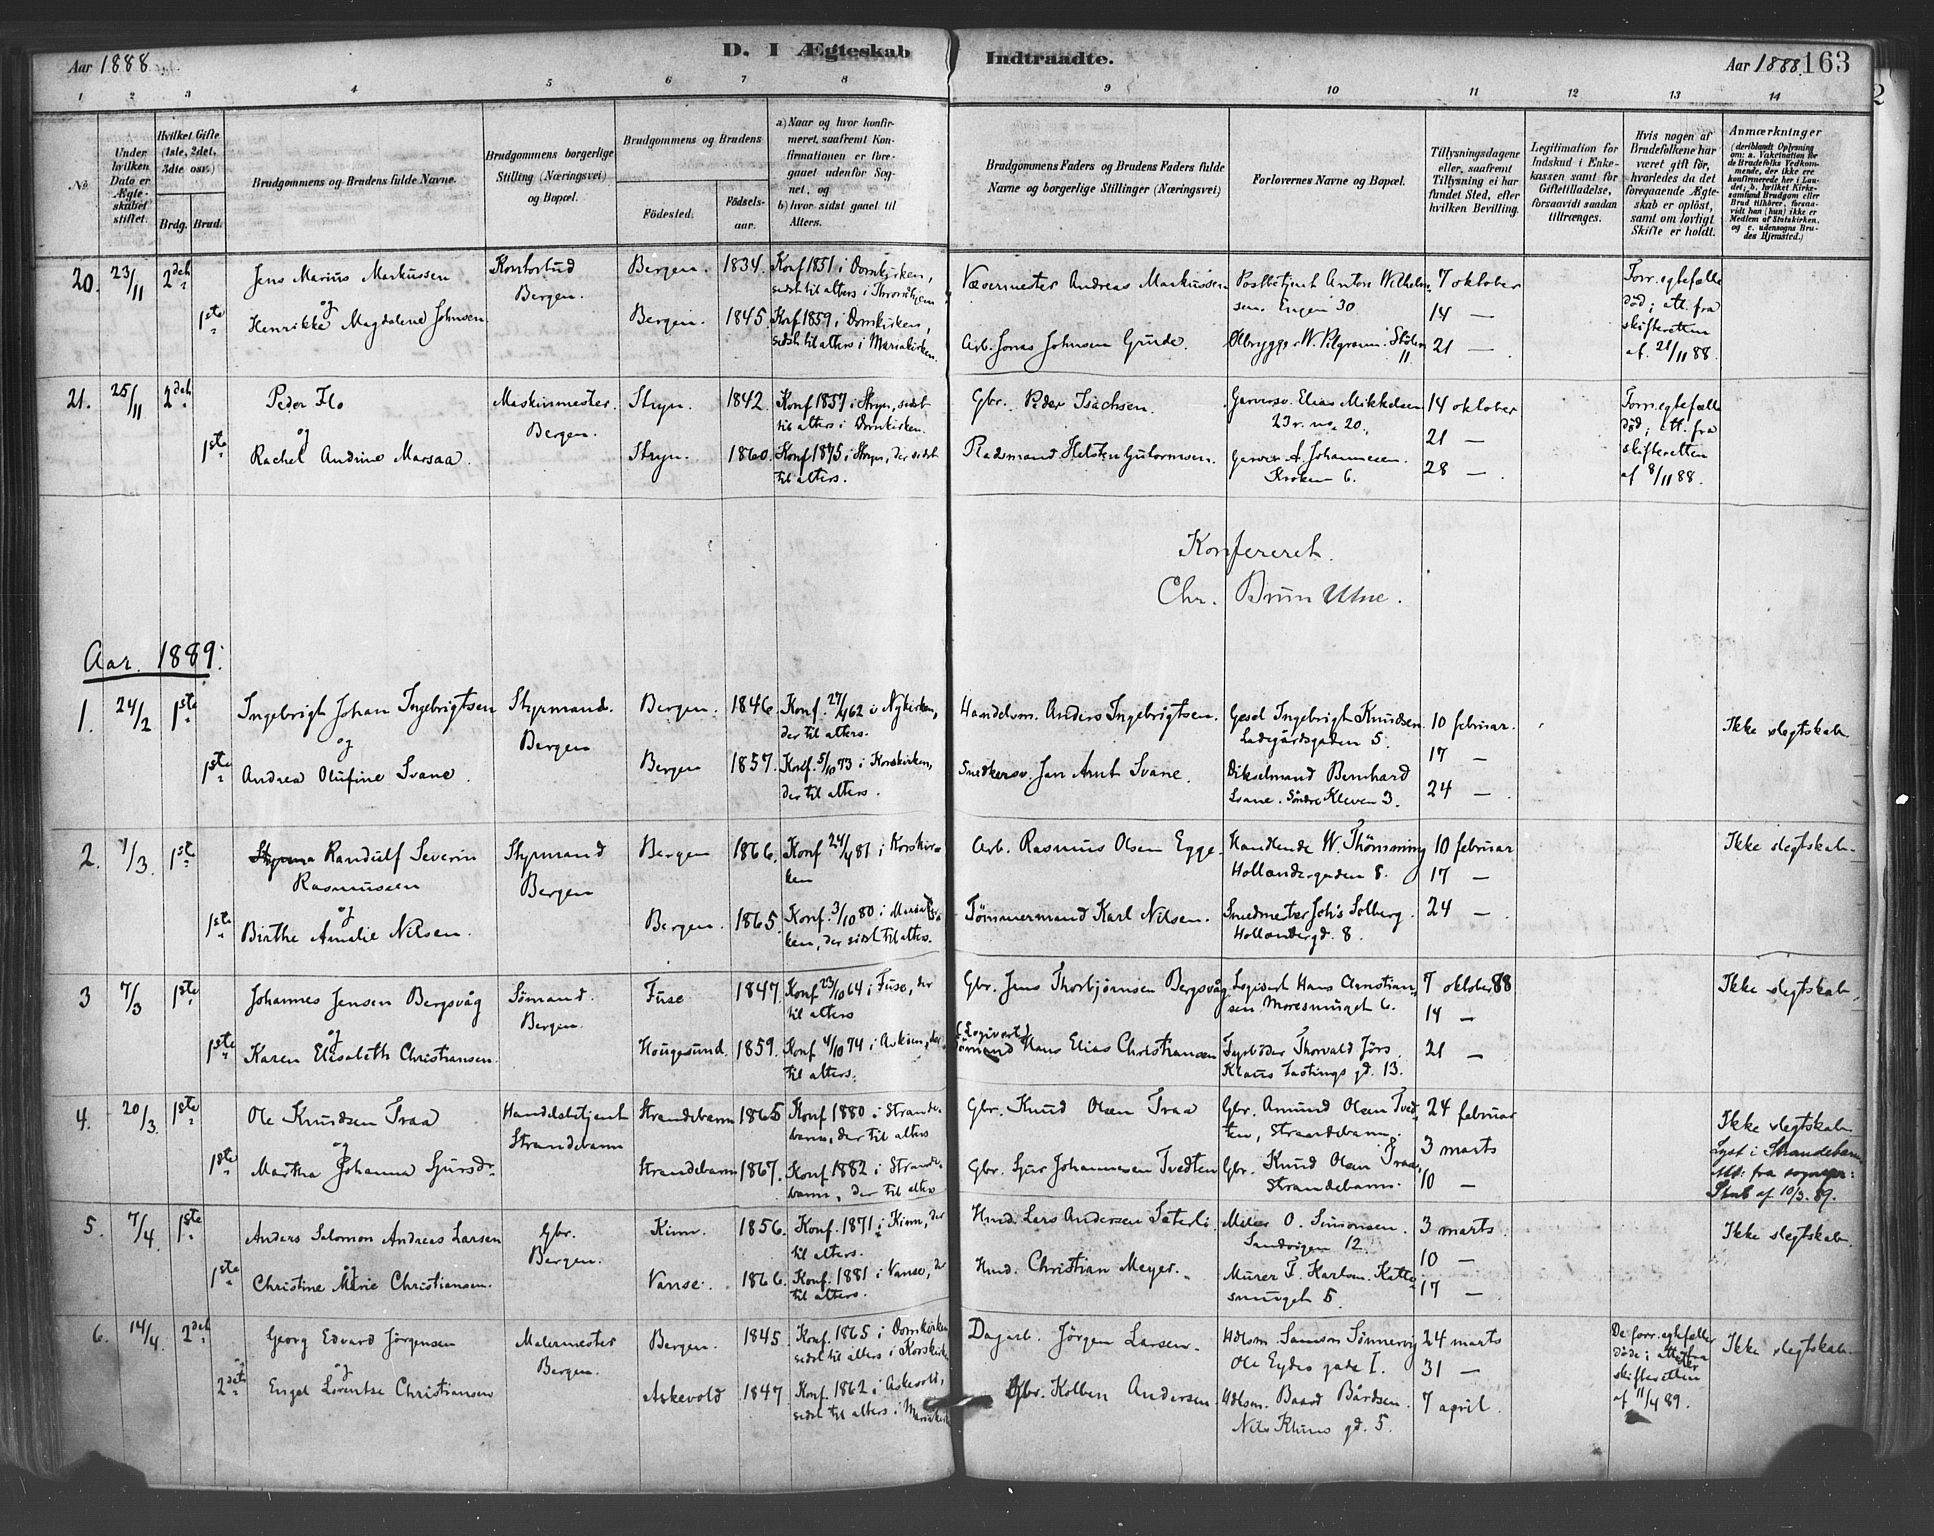 Aar 1888.
D. I Ægteskab Indtraadte.
Aar 1888. 163
1 2 3 4 5 6 7 8 9 10 11 12 13 14
No.
Under hvilken Dato er Ægteskabet stiftet.
Hvilket Gifte (1ste, 2det, 3dte osv.)
Brdg. Brud.
Brudgommens og Brudens fulde Navne.
Brudgommens borgerlige Stilling (Næringsvei) og Bopæl.
Brudgommens og Brudens
Fødested.
Fødselsaar.
a) Naar og hvor konfirmeret, saafremt Konfirmationen er foregaaet udenfor Sognet, og
b) hvor sidst gaaet til Alters.
Brudgommens Faders og Brudens Faders fulde Navne og borgerlige Stillinger (Næringsvei)
Forlovernes Navne og Bopæl.
Tillysningsdagene eller, saafremt Tillysning ei har fundet Sted, efter hvilken Bevilling.
Legitimation for Indskud i Enkekassen samt for Giftetilladelse, forsaavidt saadan tiltrænges.
Hvis nogen af Brudefolkene har været gift før, hvorledes da det foregaaende Ægteskab er opløst, samt om lovligt Skifte er holdt.
Anmærkninger
(deriblandt Oplysning om: a. Vakcination for de Brudefolks Vedkommende, der ikke ere konfirmerede her i Landet; b. hvilket Kirkesamfund Brudgom eller Brud tilhører, forsaavidt han (hun) ikke er Medlem af Statskirken, og c. udensogns Brudes Hjemsted.)
20. 23/11 2det Jens Marius Markussen Bergen. Bergen. 1834. Konf 1851 i Domkirken, sidst til alters i Throndhjem Vævermester Andreas Markussen Postbetjent Anton Wilhelmsen. Engen 30 7 oktober 14 — 21 — Forr. egtefælle død; att. fra skifteretten af 21/11 88.
og
1ste Henrikke Magdalene Johnsen Bergen. 1845. Konf 1859 i Domkirken, sidst til alters i Mariakirken. Arb. Jonas Johnsen Gjurde. Ølbrygger W. Pilgram. Stølen 11
21. 25/11 2det Peder Flo Maskinmester. Bergen. Stryn. 1842. Konf 1857 i Stryn, sidst til alters i Domkirken. Gbr. Peder Isachsen. Garversv. Elias Mikkelsen 23r. no. 20. 14 oktober 21 — 28 — Forr. egtefælle død; att. fra skifteretten af 8/11 88.
og
1ste Rachel Andrine Marsaa. Stryn. 1860. Konf 1875 i Stryn, der sidst til alters. Pladsmand Helsten Gutormsen. Garver A. Johannesen. Kroken 6.
Konfereret.
Chr. Brun Utne.
Aar 1889.
1. 24/2 1ste Ingebrigt Johan Ingebrigtsen Styrmand. Bergen Bergen. 1846. Konf. 27/4 62 i Nykirken, der til alters. Handelsm. Anders Ingebrigtsen. Gesel Ingebrigt Knudsen Ladegårdsgaden 5. 10 februar. 17 — 24 — Ikke slegtskab.
og
1ste Andrea Olufine Svane. Bergen 1857. Konf. 5/10 73 i Korskirken, der til alters. Snedkersv. Jan Arnt Svane. Dikselmand Bernhard Svane. Søndre Kleven 3.
2. 1/3 1ste Randulf Severin Rasmussen Styrmand Bergen Bergen 1866. Konf 24/4 81 i Korskirken Arb. Rasmus Olsen Egge. Handlende W. Thømming Hollendergaden 8. 10 februar 17 — 24 — Ikke slegtskab.
og
1ste Birthe Amalie Nilsen. Bergen. 1865. Konf. 3/10 80 i Mariakirken, der sidst til alters. Tømmermand Karl Nilsen. Smedmester Johs Solberg. Hollendergd. 8.
3 7/3 1ste Johannes Jensen Bergsvåg Sømand. Bergen. Fuse. 1847. Konf 23/10 64 i Fuse, der til alters Gbr. Jens Thorbjørnsen Bergsvåg Logivert Hans Christiansen. Moresmuget 6. 7 oktober 88 14 — 21 — Ikke slegtskab.
og
1ste Karen Elisabeth Christiansen. Hougesund. 1859. Konf 4/10 74 i Askøen, der til alters. (Logivert) Sømand Hans Elias Christiansen Fyrbøder Thorvald Jørs. Klaus Lastings gd. 13.
4. 20/3. 1ste Ole Knudsen Traa Handelsbetjent Strandebarm Strandebarm 1865 Konf 1880 i Strandebarm, der til alters Gbr. Knud Olsen Traa Gbr. Amund Olsen Tvedten, Strandebarm. 24 februar 3 marts 10 — Ikke slegtskab Lyst i Strandebarm
og
1ste Martha Johanna Sjursdr. Strandebarm 1867. Konf 1882 i Strandebarm, der til alters Gbr. Sjur Johannesen Tvedten Gbr. Knud Olsen Traa, Strandebarm. Att. fra af 10/3. 89.
5. 7/4. 1ste Anders Salomon Andreas Larsen Gbr. Bergen. Kinn. 1856. Konf. 1871 i Kinn, der til alters. Hmd. Lars Andersen Sæterli. Møller O. Simonsen. Sandvigen 12. 3 marts 10 — 17 — Ikke slegtskab.
og
1ste Christine Marie Christiansen. Vanse. 1866. Konf. 1881 i Vanse, der til alters. Hmd. Christian Meyer. Murer T. Karlsen. Kattesmuget 5.
6. 14/4. 2det Georg Edvard Jørgensen Malermester Bergen. Bergen. 1845. Konf. 1865 i Domkirken sidst til alters i Korskirken Dagarb. Jörgen Larsen. Hdlsm. Samson Sønnervig Ole Eydes gade 1. 24 marts 31 — 7 april. De forr. egtefæller døde; atter fra skifteretten af 11/4 89. Ikke slegtskab.
og
2det Engel Lorentse Christiansen Askevold 1847 Konf. 1862 i Askevold, sidst til alters i Mariakirken Gbr. Kolben Andersen. Hdlsm. Baard Bårdsen. Nils Klims gd. 5.